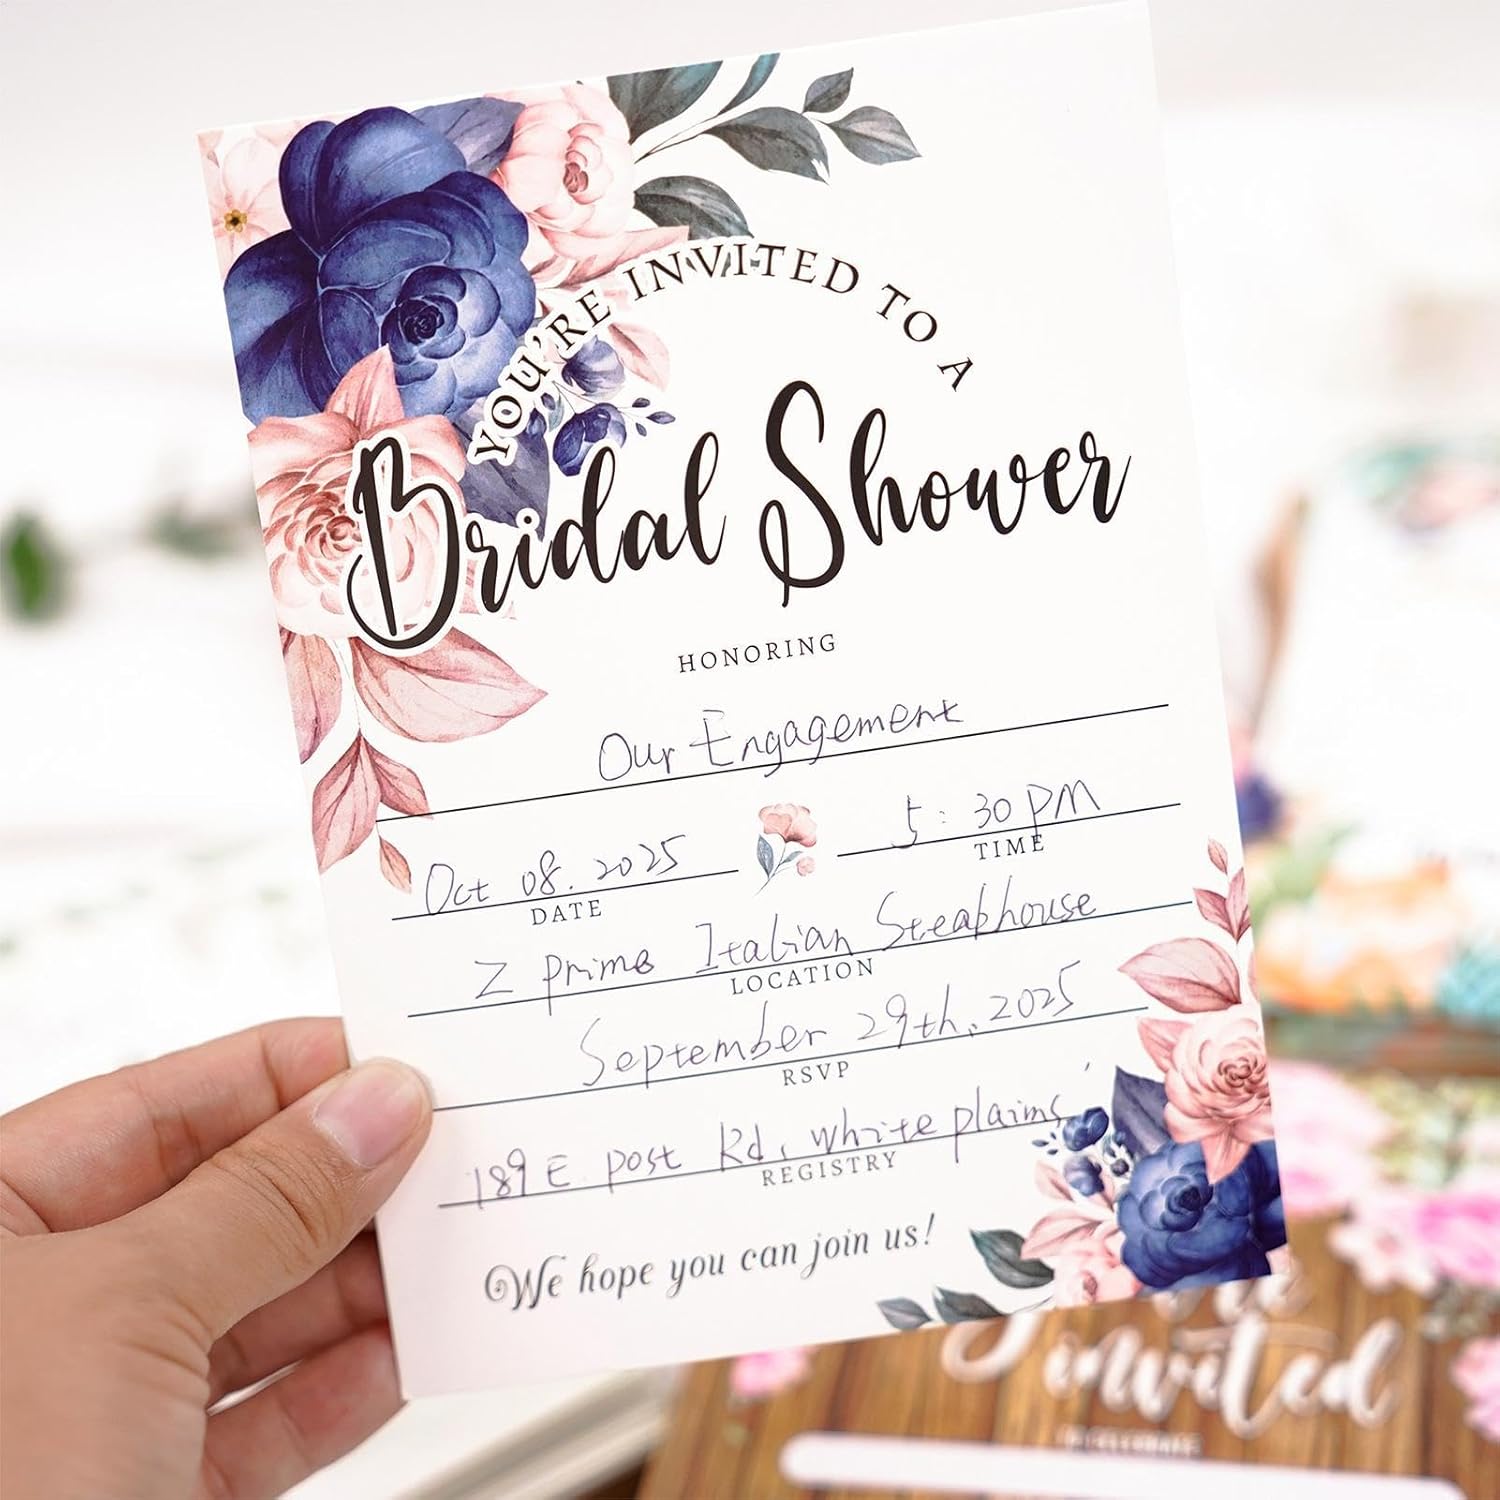 YOU'RE INVITED TO A
Bridal Shower
HONORING
Our Engagement
Oct 08. 2025
DATE
5:30 PM
TIME
Z prime Italian Steakhouse
LOCATION
September 29th, 2025
RSVP
189 E post Rd, white plains,
REGISTRY
We hope you can join us!
invited